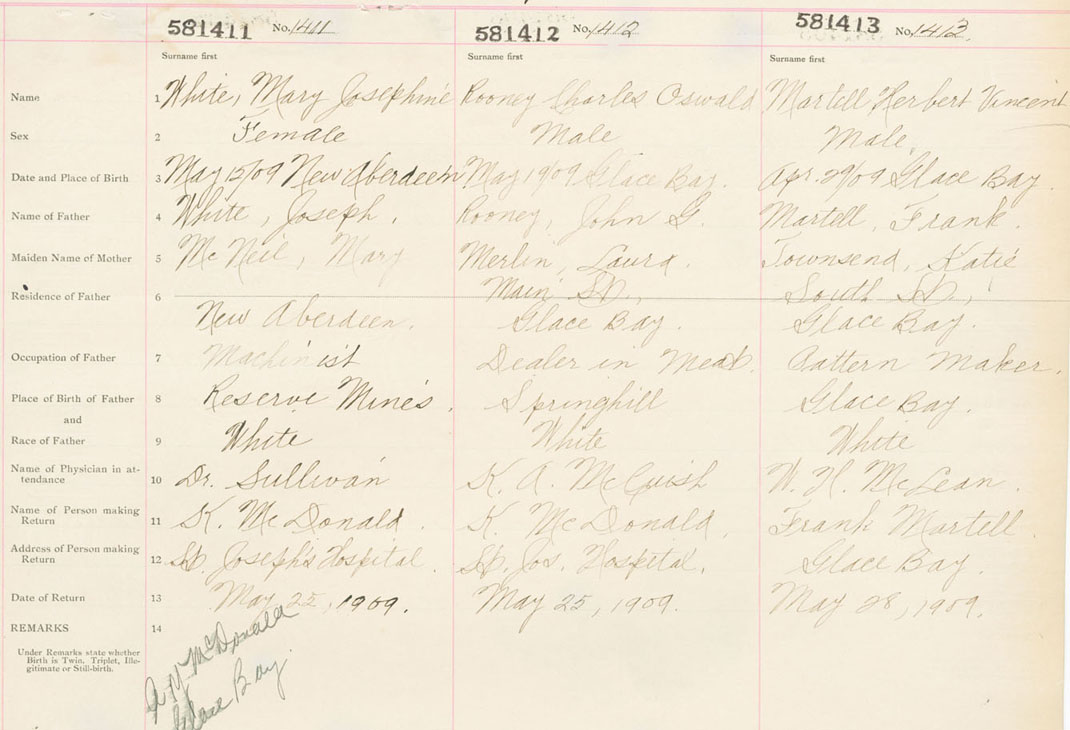 581411 No. 1411 581412 No. 1412 581413 No. 1413.
Surname first Surname first Surname first
Name 1 White, Mary Josephine Rooney Charles Oswald Martell Herbert Vincent
Sex 2 Female Male Male.
Date and Place of Birth 3 May 15/09 New Aberdeen May 19/09 Glace Bay. Apr. 29/09 Glace Bay.
Name of Father 4 White, Joseph. Rooney, John G. Martell, Frank.
Maiden Name of Mother 5 McNeil, Mary Merlin, Laura. Townsend, Katie
Residence of Father 6 Main St., South St.,
New Aberdeen. Glace Bay. Glace Bay.
Occupation of Father 7 Machinist Dealer in Meat. Pattern Maker.
Place of Birth of Father 8 Reserve Mines. Springhill Glace Bay.
and
Race of Father 9 White White White
Name of Physician in at-
tendance 10 Dr. Sullivan K. A. McCuish W. H. McLean.
Name of Person making
Return 11 K. McDonald. K. McDonald. Frank Martell.
Address of Person making
Return 12 St. Joseph's Hospital. St. Jos. Hospital. Glace Bay.
Date of Return 13 May 25, 1909. May 25, 1909. May 28, 1909.
REMARKS 14
Under Remarks state whether
Birth is Twin, Triplet, Ille-
gitimate or Still-birth.
McDonald
Glace Bay.